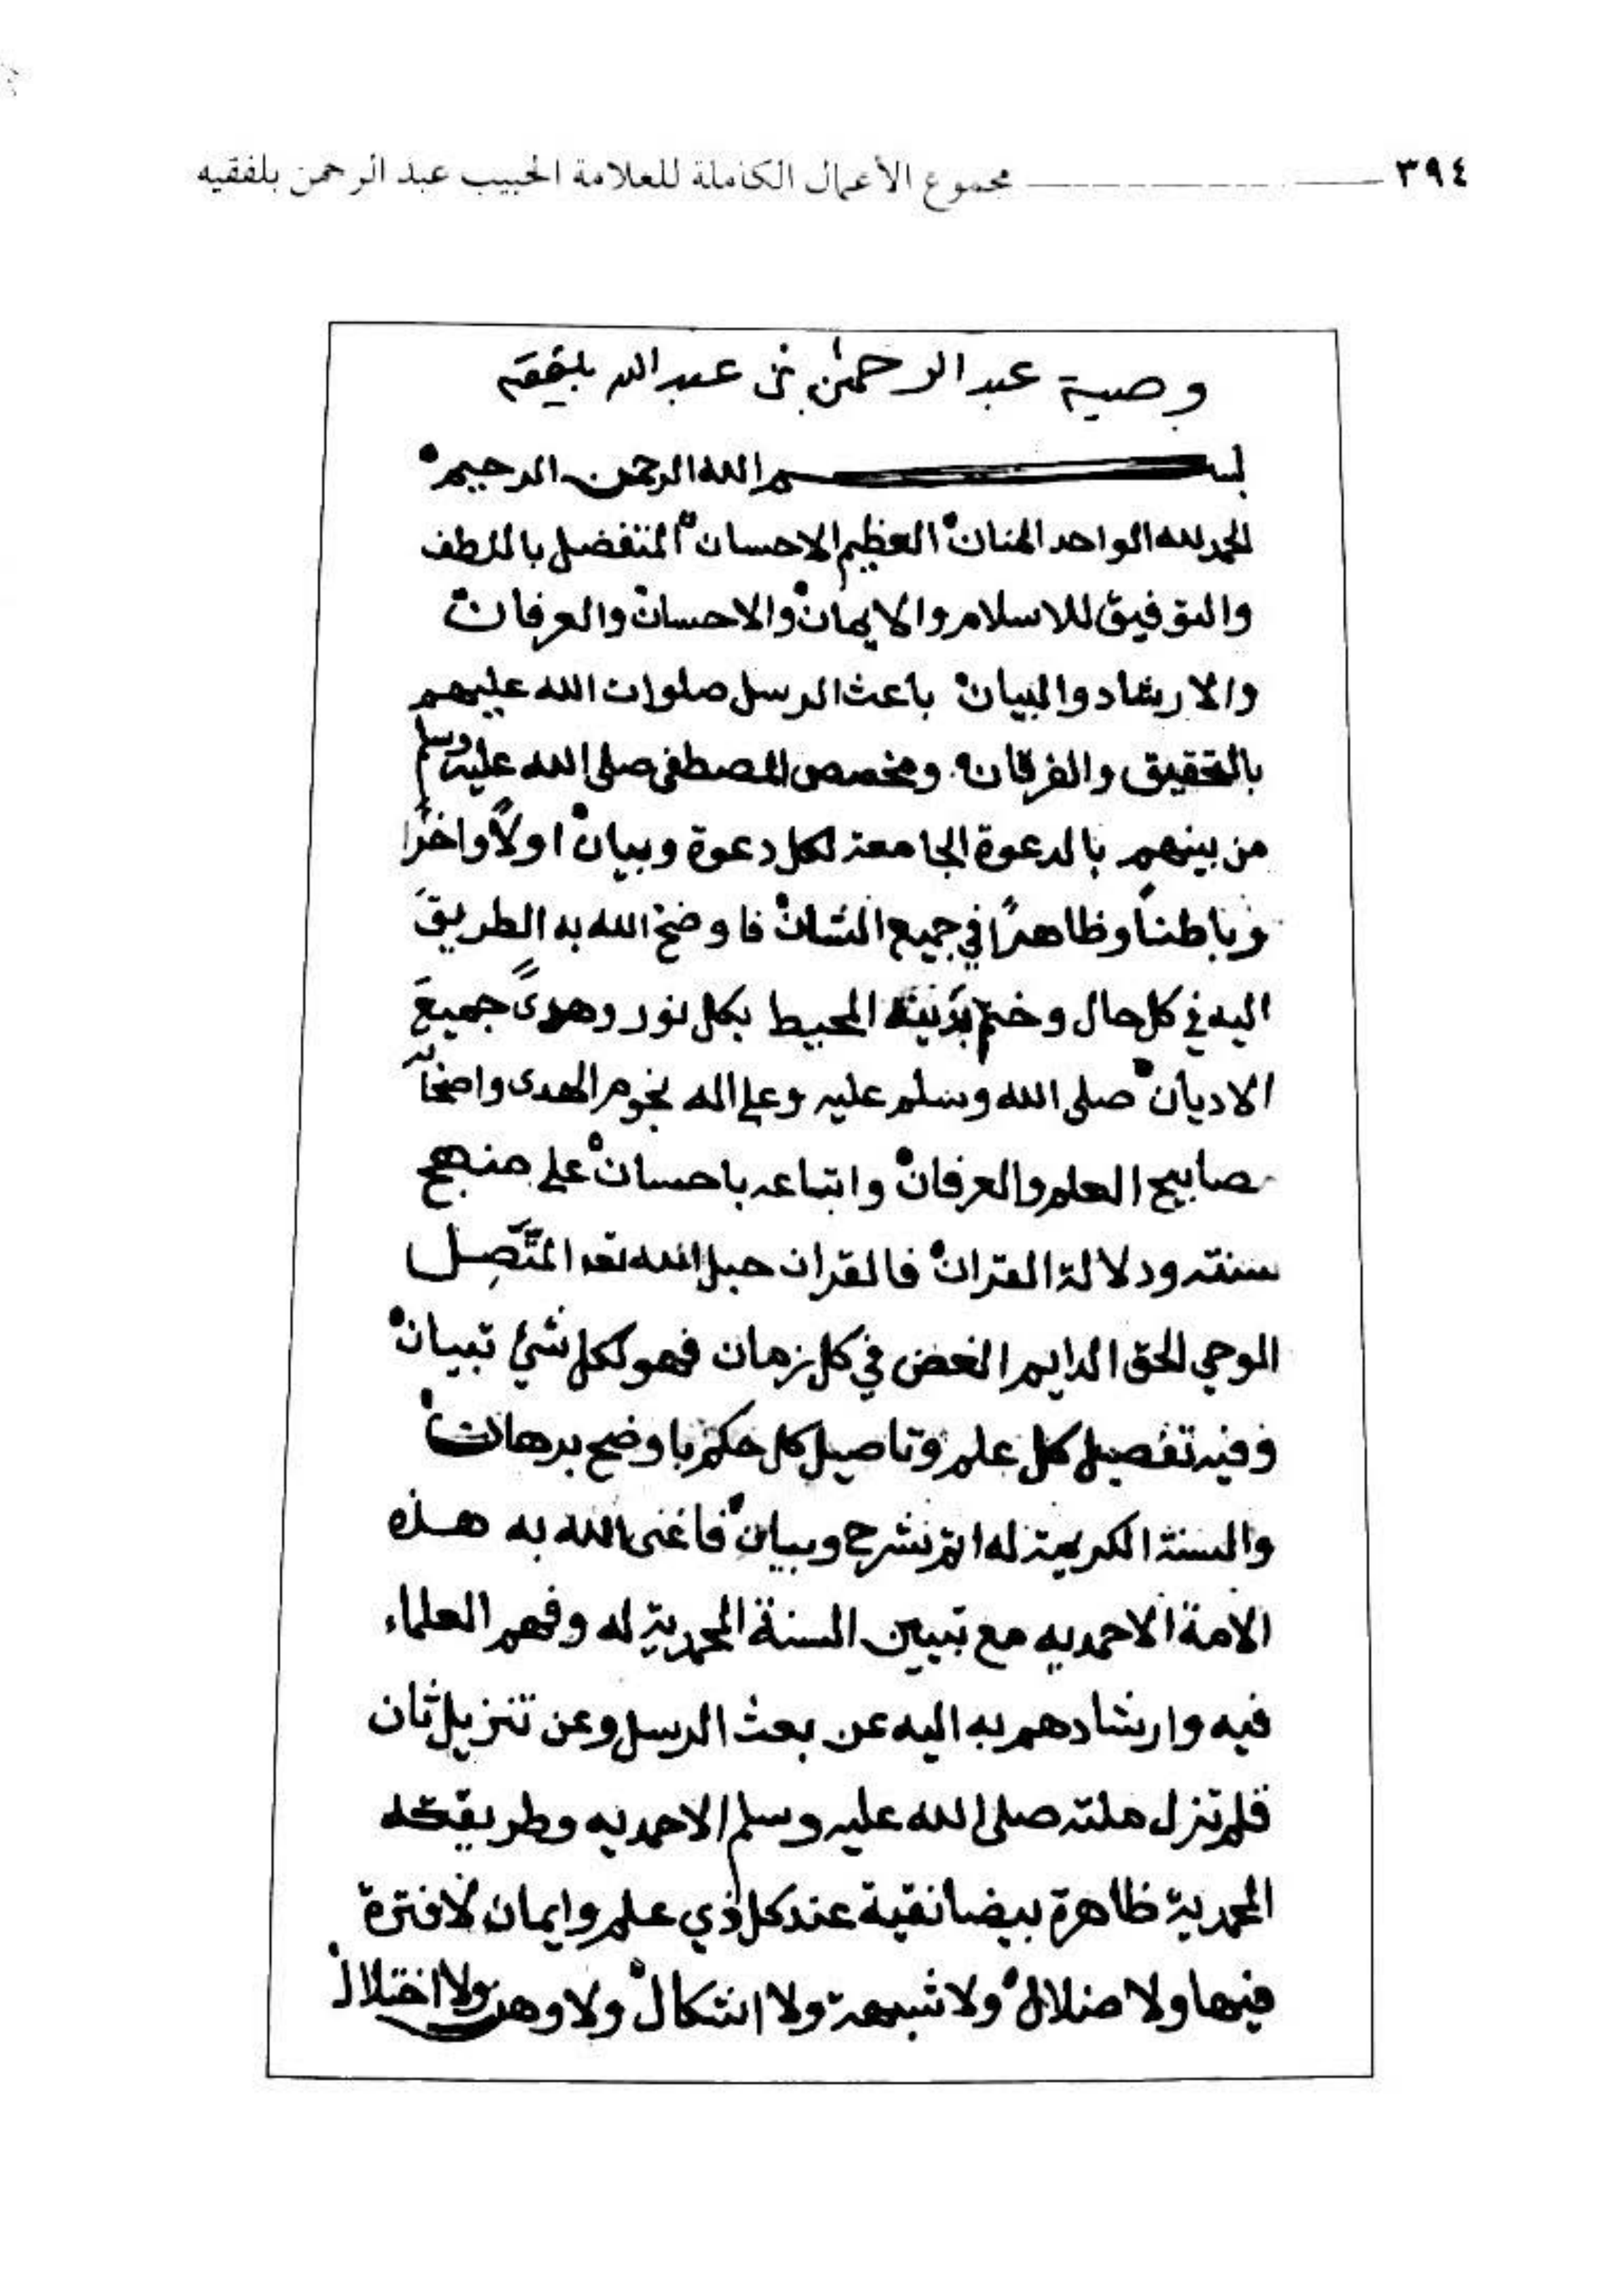 ٣٩٤ مجموع الأعمال الكاملة للعلامة الحبيب عبد الرحمن بلفقيه
وصية عبد الرحمٰن بن عبد الله بلفقيه
بسم الله الرحمن الرحيم
الحمد لله الواحد المنان العظيم الاحسان المتفضل باللطف
والتوفيق للاسلام والايمان والاحسان والعرفان
والارشاد والبيان باعث الرسل صلوات الله عليهم
بالتحقيق والفرقان ومخصص المصطفى صلى الله عليه وسلم
من بينهم بالدعوة الجامعة لكل دعوة وبيان اولاً واخرًا
وباطناً وظاهرًا في جميع الشان فاوضح الله به الطريقَ
اليه في كل حال وختم بدينه المحيط بكل نور وهدىً جميعَ
الاديان صلى الله وسلم عليه وعلى اله نجوم الهدى واصحابه
مصابيح العلم والعرفان واتباعه باحسان على منهج
سنته ودلالة القران فالقران حبل الله تعا المتَّصِل
الوحي الحق الدايم الغض في كل زمان فهو لكل شئ تبيان
وفيه تفصيل كل علم وتاصيل كل حكم باوضح برهان
والسنة الكريمة له اتم شرح وبيان فاغنى الله به هذه
الامة الاحمديه مع تبيين السنة المحمدية له وفهم العلماء
فيه وارشادهم به اليه عن بعث الرسل وعن تنزيل ثان
فلم تزل ملته صلى الله عليه وسلم الاحمديه وطريقته
المحمدية ظاهرة بيضا نقية عند كل ذي علم وايمان لا فترة
فيها ولا ضلال ولا شبهة ولا اشكال ولا وهن ولا اختلال